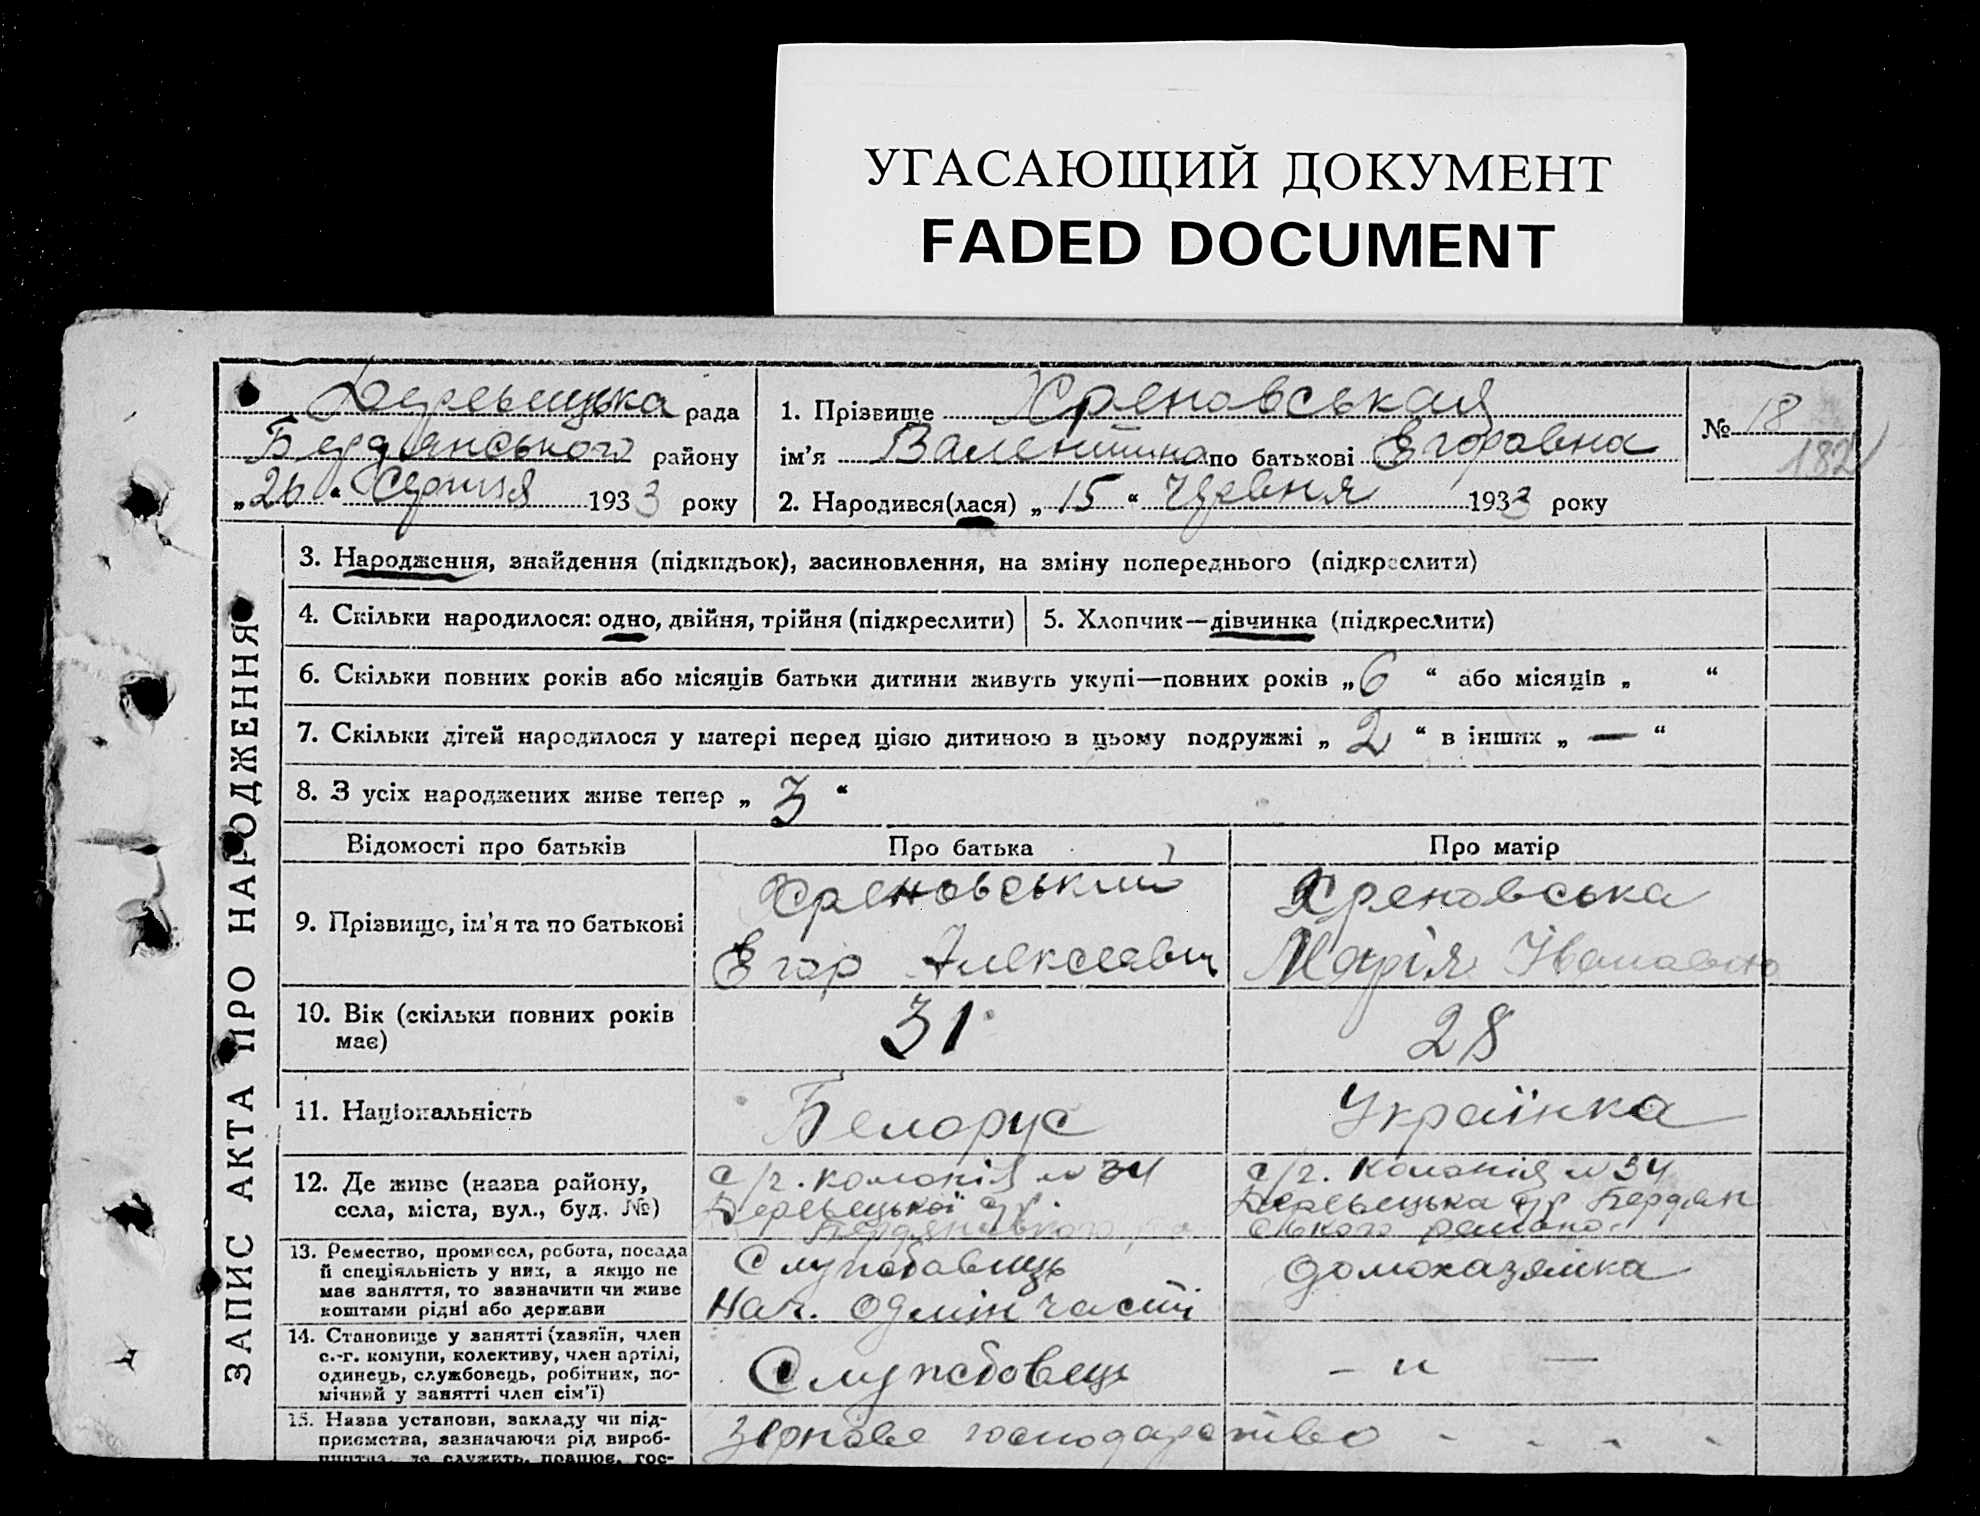 УГАСАЮЩИЙ ДОКУМЕНТ
FADED DOCUMENT
Деревецька рада
Бердянського району
„26“ Серпня 1933 року
1. Прізвище Хреновськая
ім’я Валентина по батькові Егоровна
2. Народився(лася) „15“ Червня 1933 року
№ 18
182
ЗАПИС АКТА ПРО НАРОДЖЕННЯ
3. Народження, знайдення (підкидьок), засиновлення, на зміну попереднього (підкреслити)
4. Скільки народилося: одно, двійня, трійня (підкреслити)
5. Хлопчик—дівчинка (підкреслити)
6. Скільки повних років або місяців батьки дитини живуть укупі—повних років „6“ або місяців „ “
7. Скільки дітей народилося у матері перед цією дитиною в цьому подружжі „2“ в інших „—“
8. З усіх народжених живе тепер „3“
Відомості про батьків
Про батька
Про матір
9. Прізвище, ім’я та по батькові
Хреновський
Егор Алексеевич
Хреновська
Марія Івановна
10. Вік (скільки повних років
має)
31
28
11. Національність
Белорус
Українка
12. Де живе (назва району,
села, міста, вул., буд. №)
с/г. колонія № 34
Деревецької с/р.
Бердянського
с/г. колонія № 34
Деревецька с/р Бердян
ського району
13. Ремество, промисел, робота, посада
й спеціяльність у них, а якщо не
має заняття, то зазначити чи живе
коштами рідні або держави
Службовець
Нач. Адмін части
Домохазяйка
14. Становище у занятті (хазяїн, член
с.-г. комуни, колективу, член артілі,
одинець, службовець, робітник, по-
мічний у занятті член сім’ї)
Службовець
— „ —
15. Назва установи, закладу чи під-
приємства, зазначаючи рід вироб-
ництва, де служить, працює, гос-
Зернове господарство - - - -